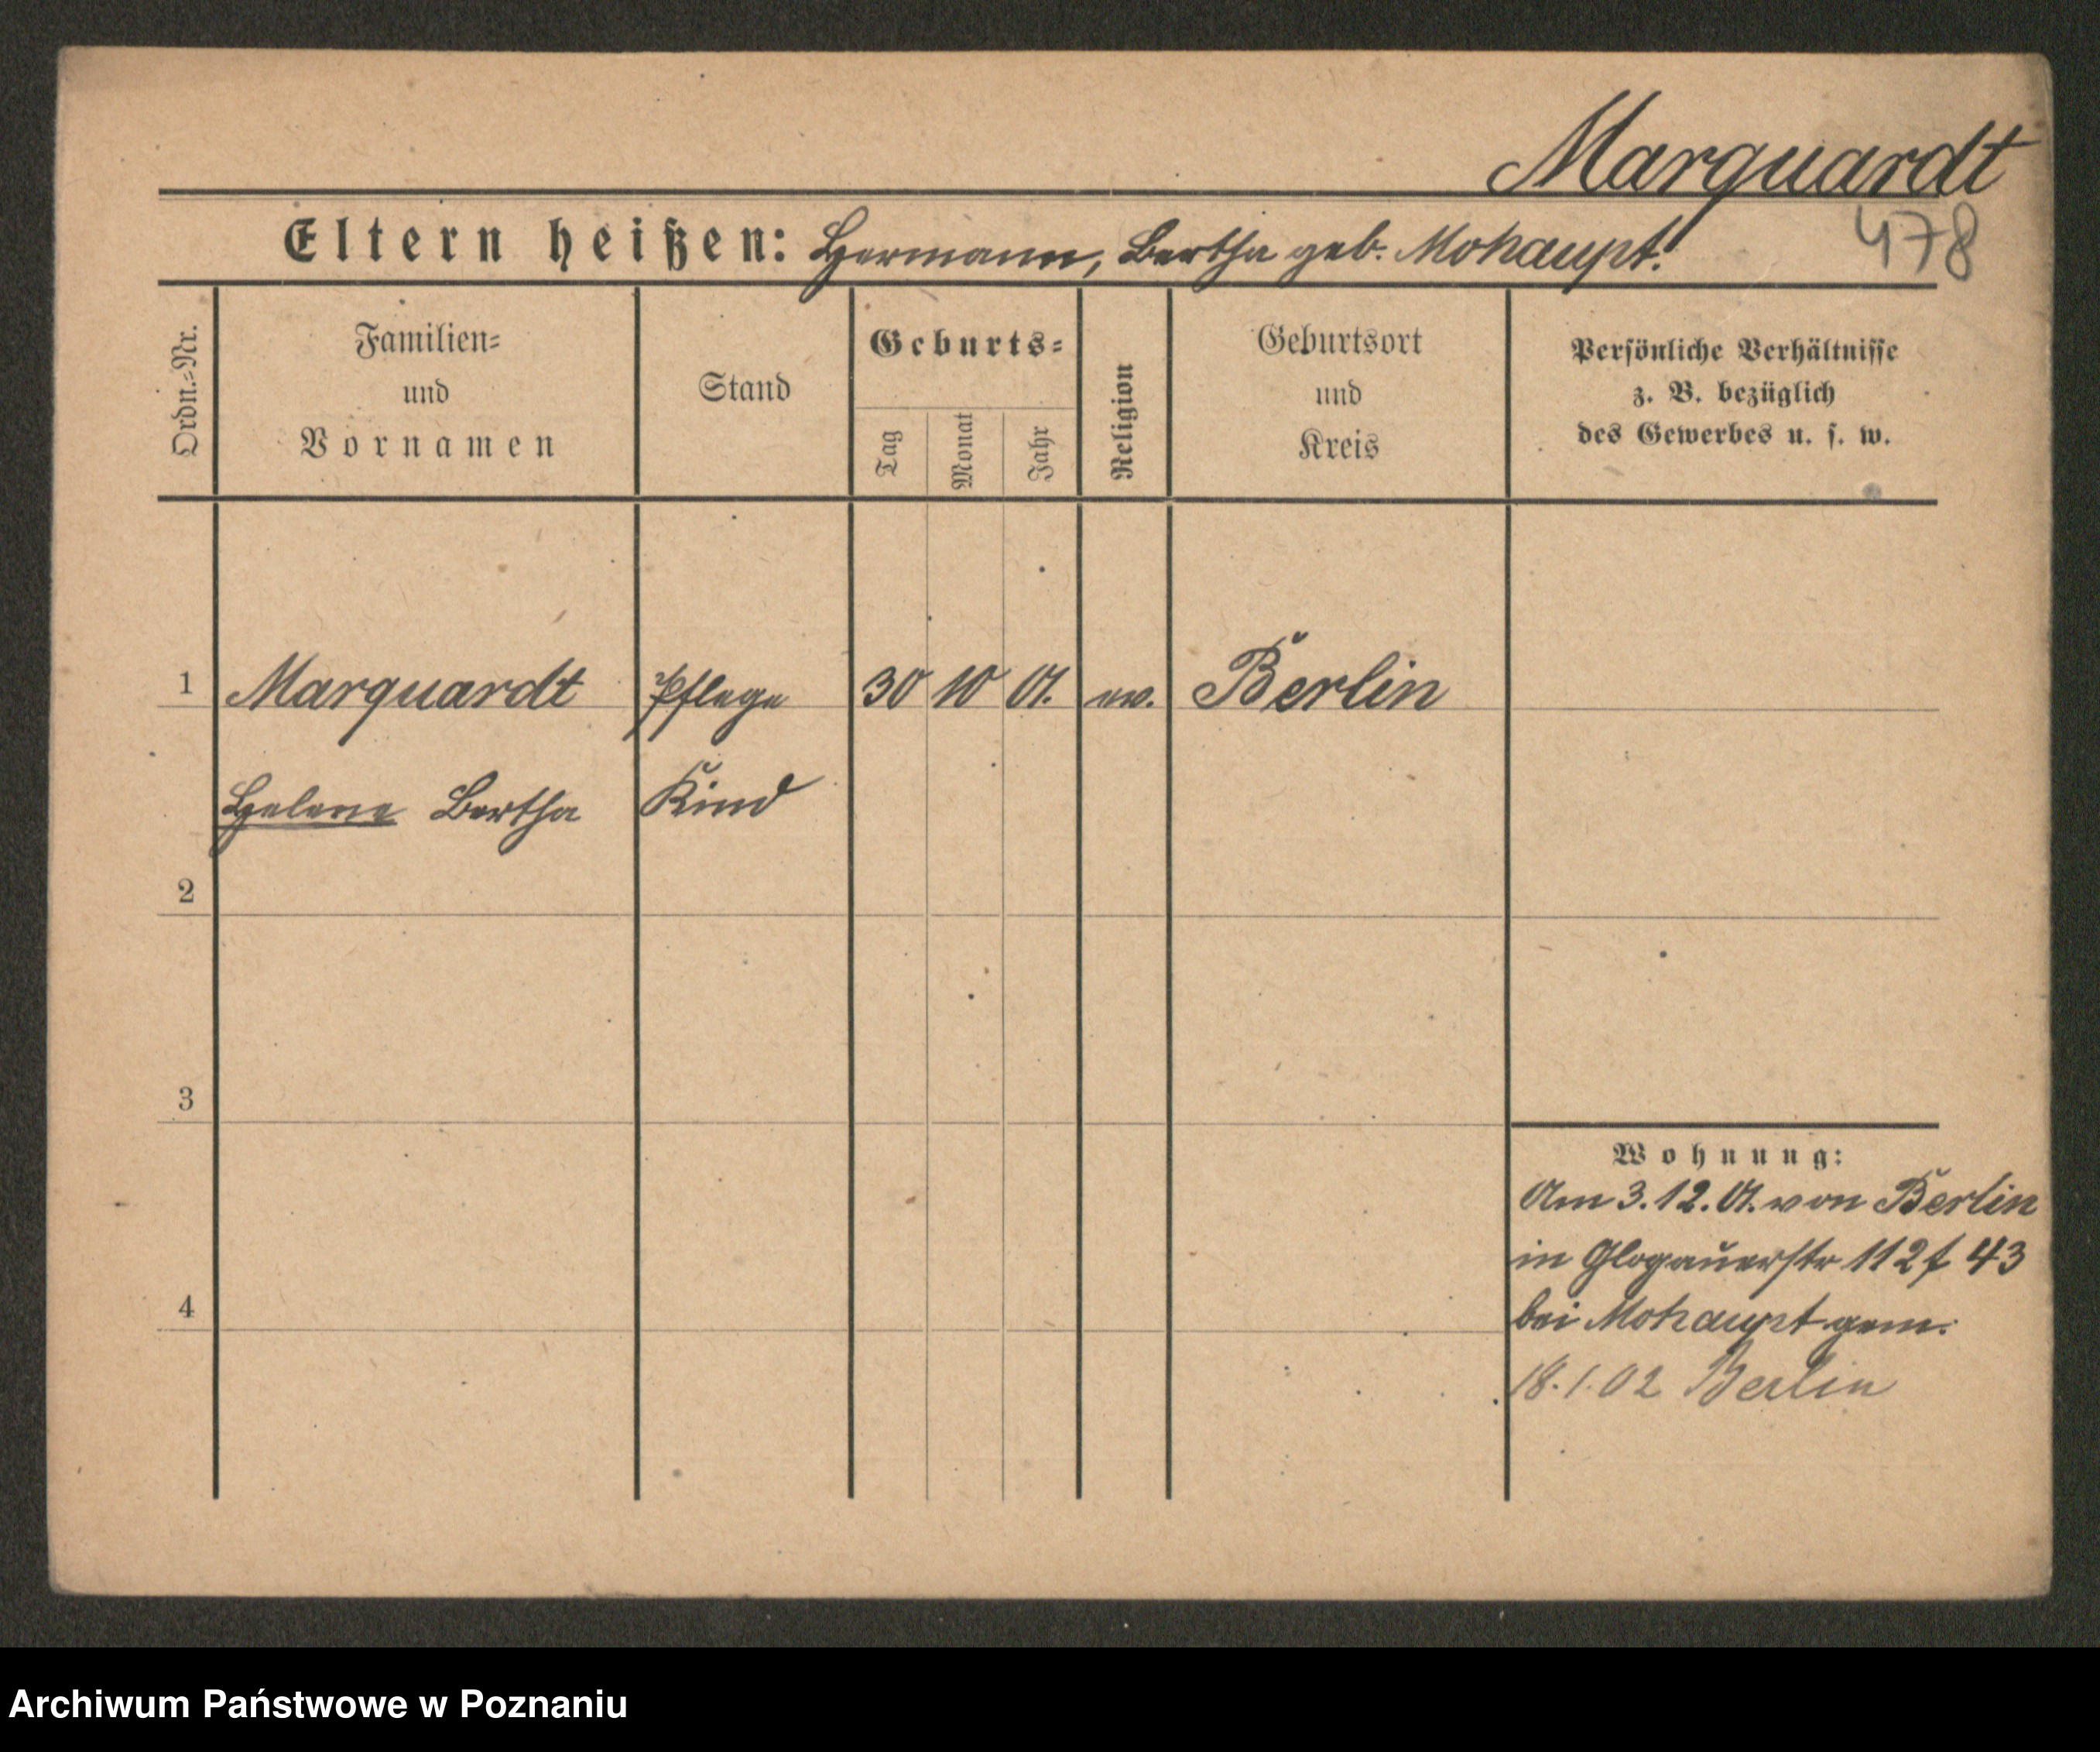 Marquardt
478
Eltern heißen: Hermann, Bertha geb. Mohaupt.
Ordn.=Nr.
Familien=
und
Vornamen
Stand
Geburts=
Tag
Monat
Jahr
Religion
Geburtsort
und
Kreis
Persönliche Verhältnisse
z. B. bezüglich
des Gewerbes u. s. w.
1 Marquardt Pflege 30 10 01. ev. Berlin
Helene Bertha Kind
2
3
4
Wohnung:
Am 3.12.01. von Berlin
in Glogauerstr 112 43
bei Mohaupt gem.
18.1.02 Berlin
Archiwum Państwowe w Poznaniu